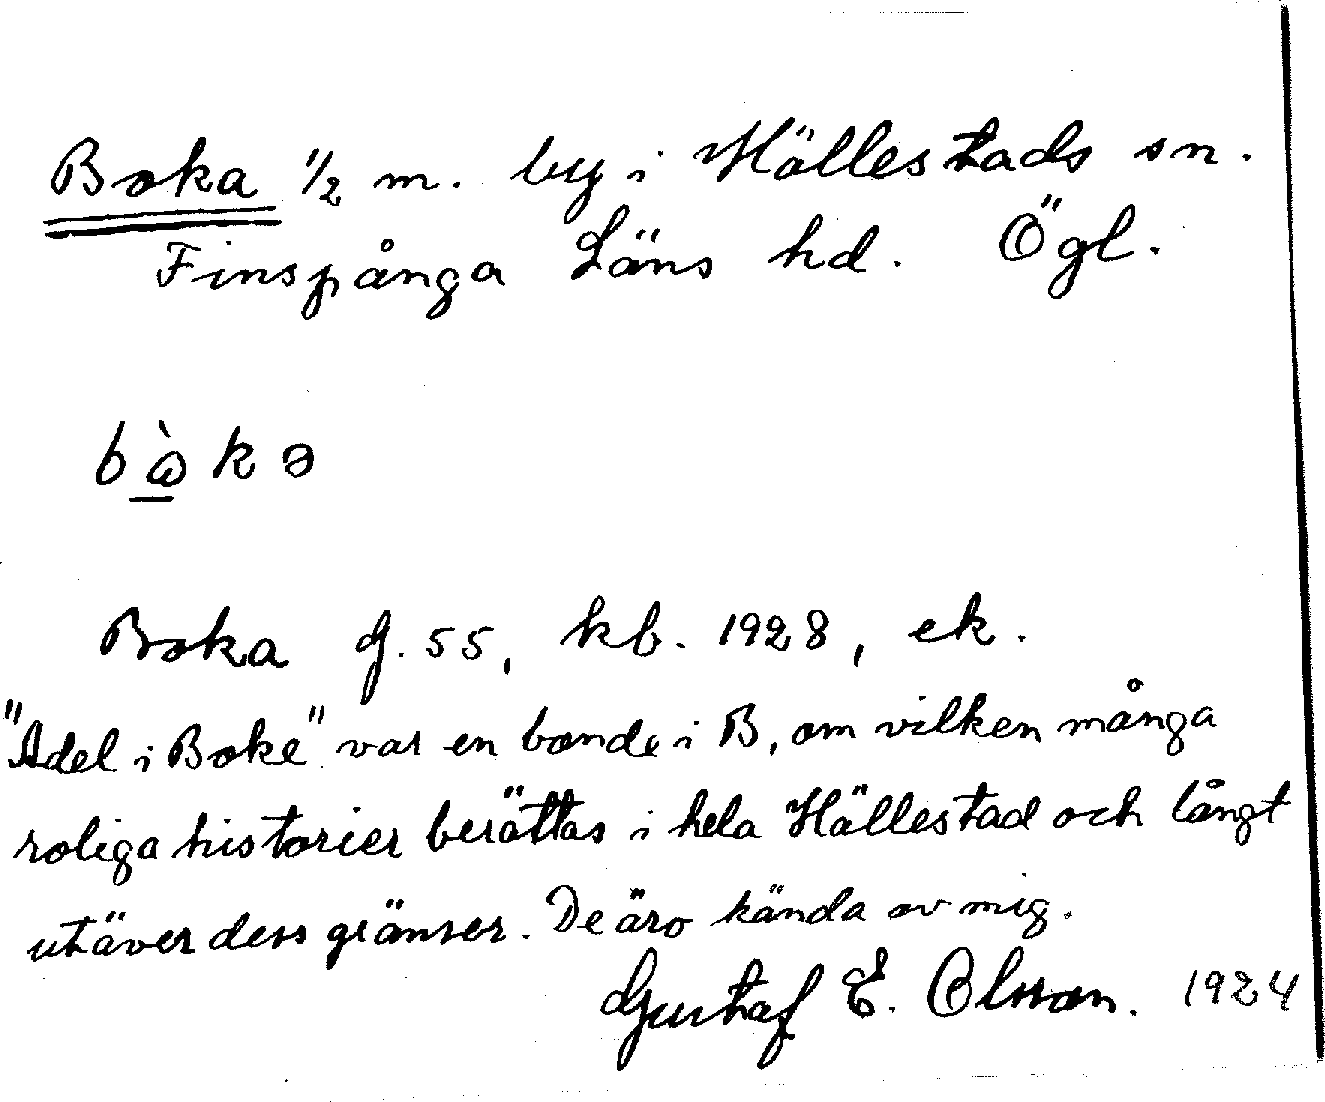 Boka 1/2 m. by i Hällestads sn.
Finspånga Läns hd. Ögl.
bὼkə
Boka f. 55, kb. 1928, ek.
"Adel i Boke" var en bonde i B, om vilken många
roliga historier berättas i hela Hällestad och långt
utäver dess gränser. De äro kända av mig.
Gustaf E. Olsson. 1924